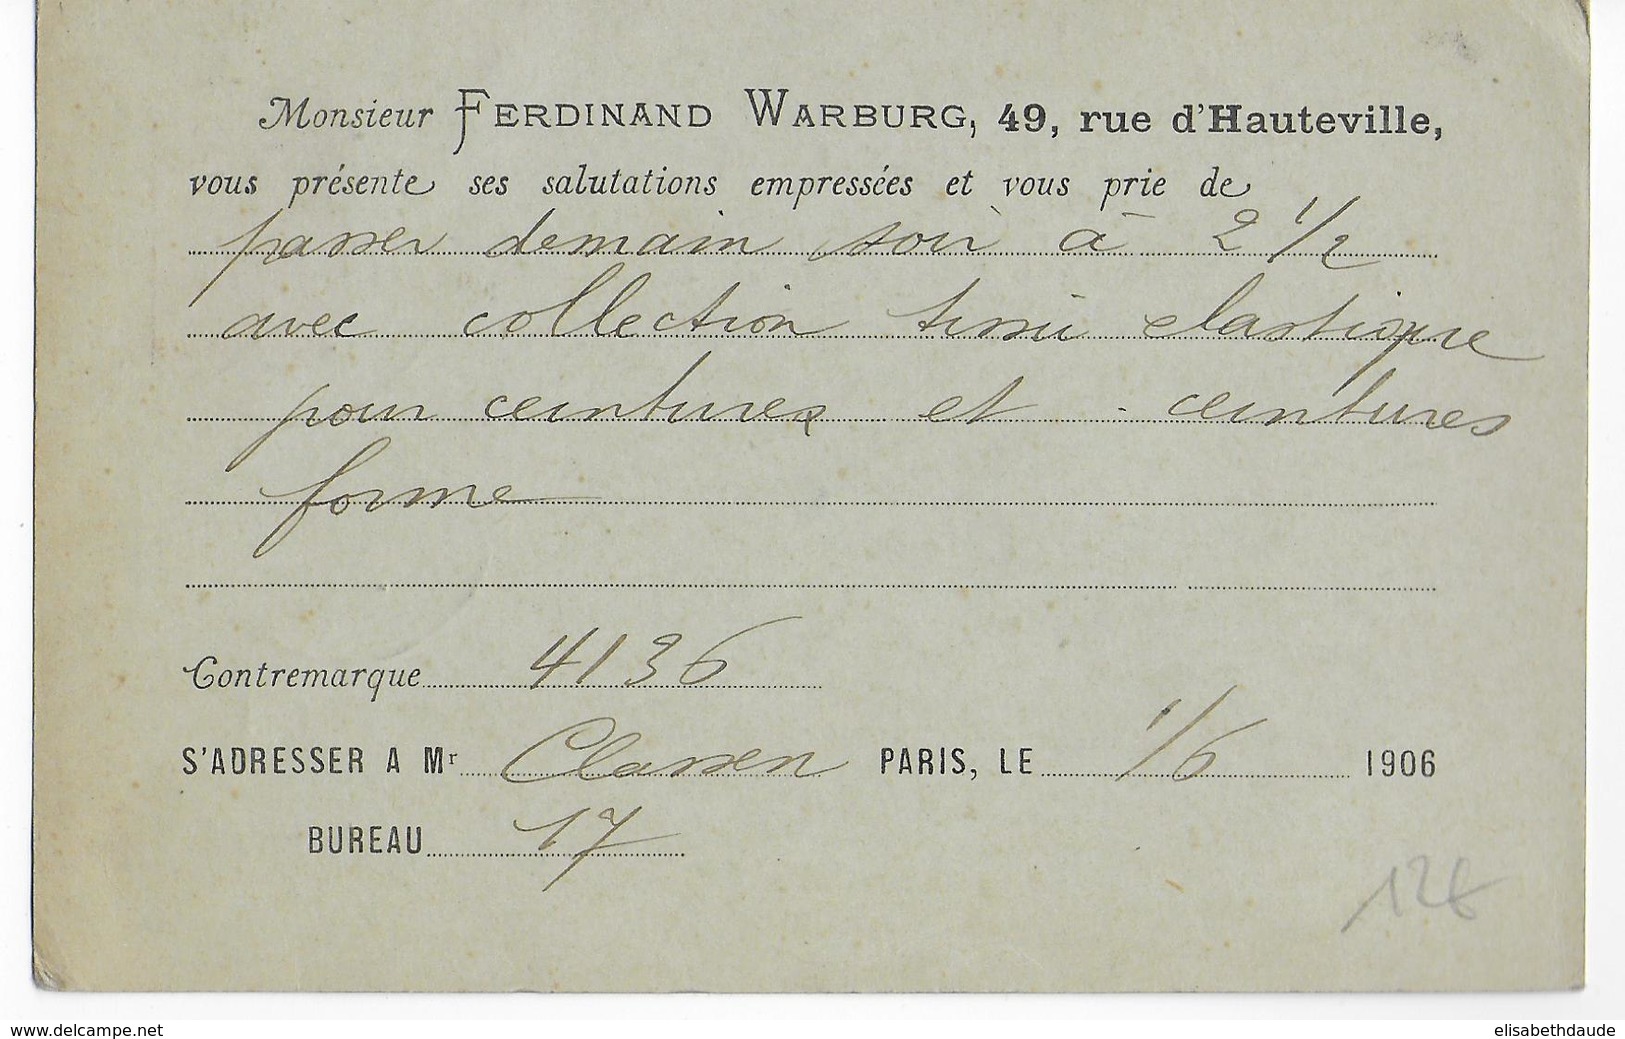 Monsieur FERDINAND WARBURG, 49, rue d'Hauteville,
vous présente ses salutations empressées et vous prie de
passer demain soir à 2 1/2
avec collection tissu elastique
pour ceintures et ceintures
forme
Contremarque 4136
S'ADRESSER A Mr Classen PARIS, LE 1/6 1906
BUREAU 17
12€
www.delcampe.net
elisabethdaude